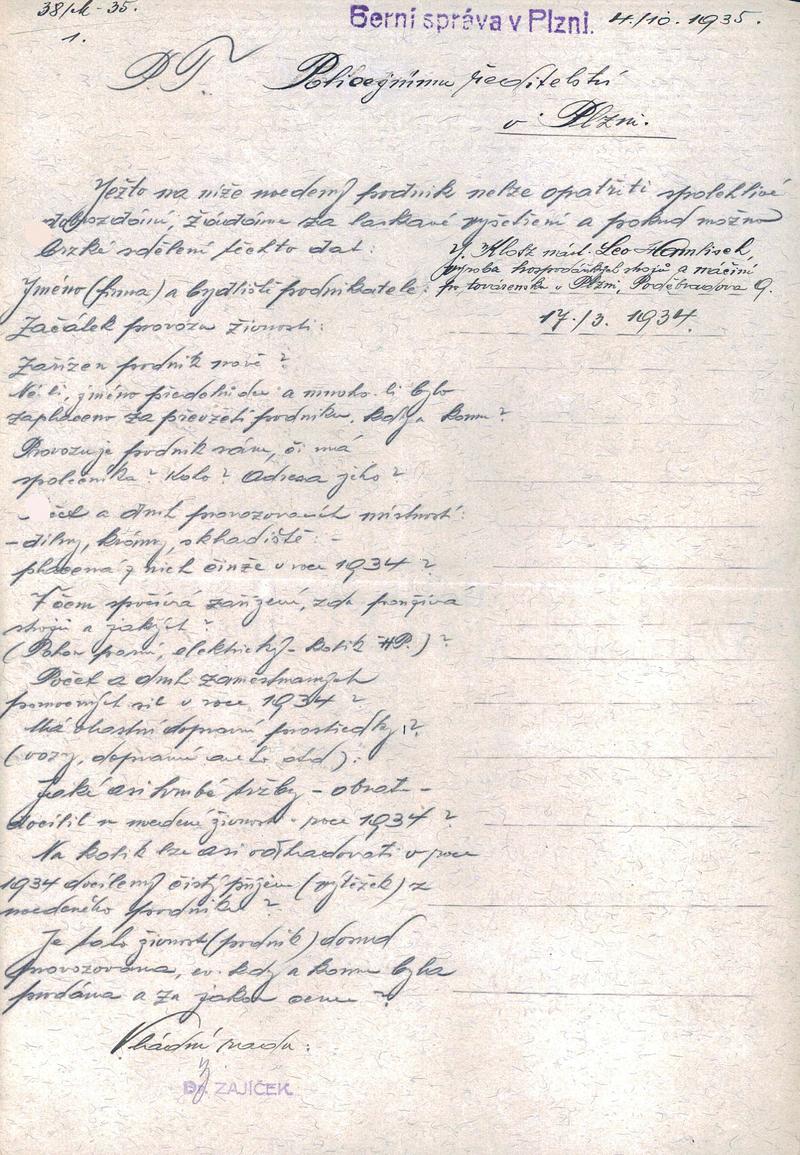 38/M-35.
Berní správa v Plzni. 4./10. 1935.
1.
P. T. Policejnímu ředitelství
v Plzni.
Ježto na níže uvedený podnik nelze opatřiti spolehlivé
dobrozdání, žádáme za laskavé vyšetření a pokud možno
brzké sdělení těchto dat:
Jméno (firma) a bydliště podnikatele:
Klotz nást. Leo
výroba hospodářských strojů a náčiní
továrensku v Plzni, Poděbradova 9.
Začátek provozu živnosti:
17./3. 1934.
Zařízen podnik nově?
Ne-li, jméno předchůdce a mnoho-li bylo
zaplaceno za převzetí podniku, kdy a komu?
Provozuje podnik sám, či má
společníka? Koho? Adresa jeho?
a druh provozovacích místností:
- dílny, krámy, skladiště: -
placená z nich činže v roce 1934?
V čem spočívá zařízení, zda používá
strojů a jakých?
(Pohon parní, elektrický - kolik HP.)?
Počet a druh zaměstnaných
pomocných sil v roce 1934?
Má vlastní dopravní prostředky?
(vozy, dopravní auto atd.):
Jaké asi hrubé tržby - obrat -
docílil u uvedené živnosti v roce 1934?
Na kolik lze asi odhadovati v roce
1934 docílený čistý příjem (výtěžek) z
uvedeného podniku?
Je tato živnost (podnik) dosud
provozována, ev. kdy a komu byla
prodána a za jakou cenu?
Vládní rada:
Dr. ZAJÍČEK.